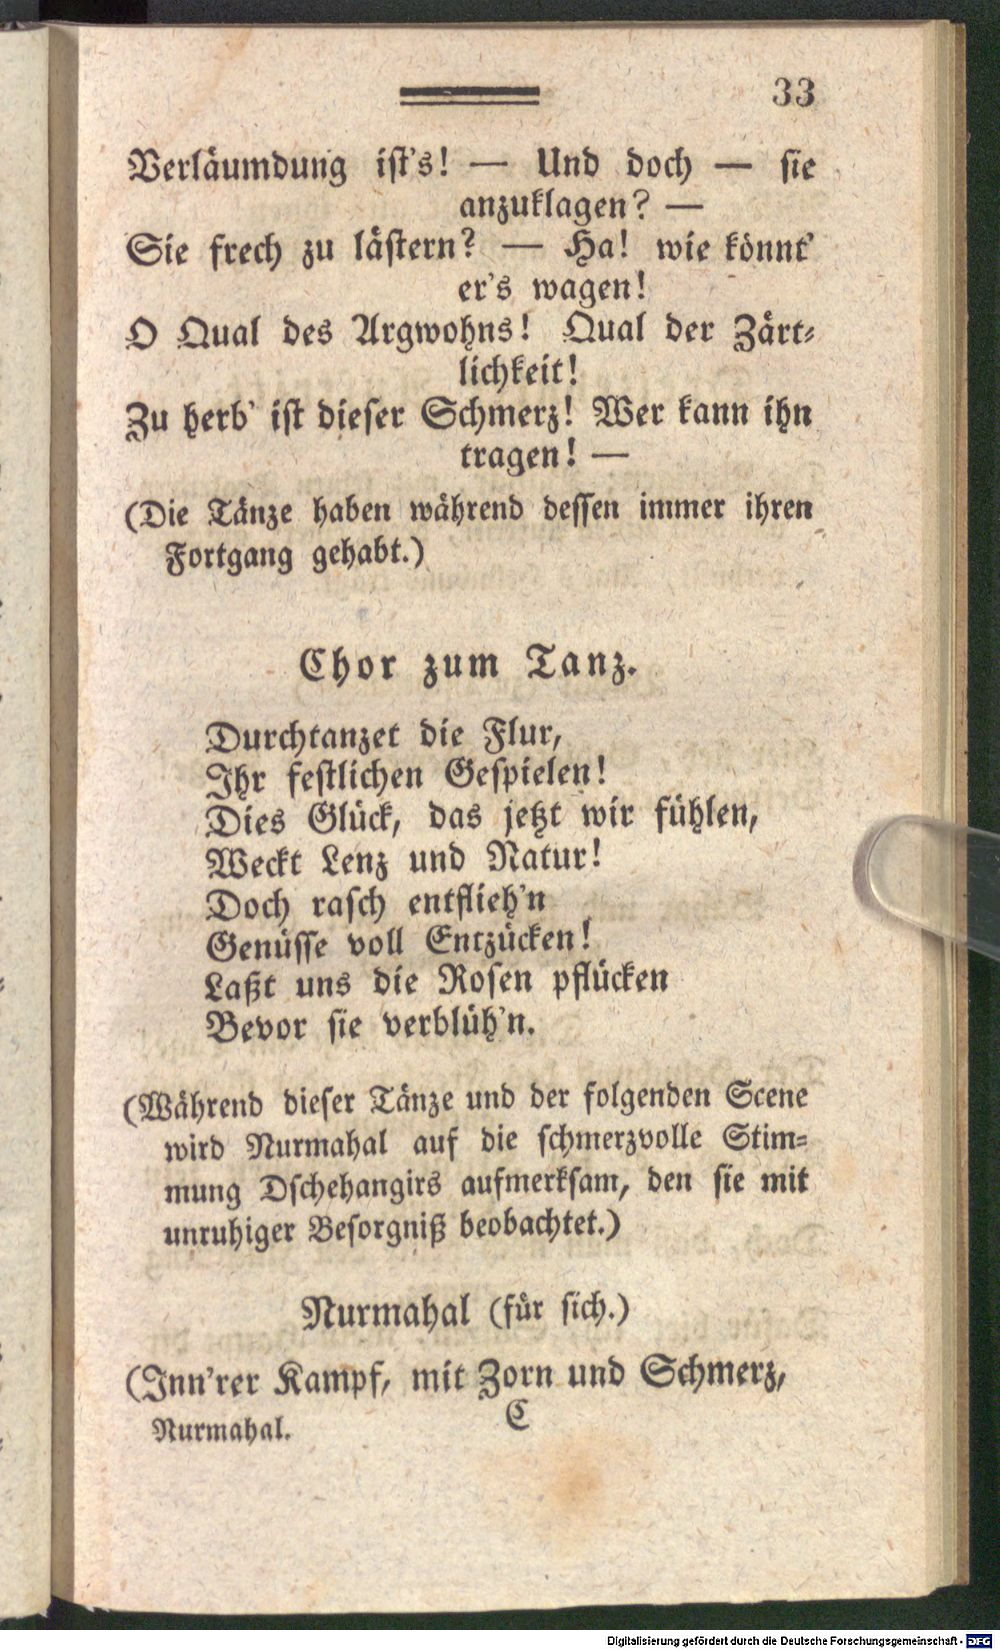 33
Verläumdung ist's! — Und doch — sie
anzuklagen? —
Sie frech zu lästern? — Ha! wie könnt'
er's wagen!
O Qual des Argwohns! Qual der Zärt-
lichkeit!
Zu herb' ist dieser Schmerz! Wer kann ihn
tragen! —
(Die Tänze haben während dessen immer ihren
Fortgang gehabt.)
Chor zum Tanz.
Durchtanzet die Flur,
Ihr festlichen Gespielen!
Dies Glück, das jetzt wir fühlen,
Weckt Lenz und Natur!
Doch rasch entflieh'n
Genüsse voll Entzücken!
Laßt uns die Rosen pflücken
Bevor sie verblüh'n.
(Während dieser Tänze und der folgenden Scene
wird Nurmahal auf die schmerzvolle Stim-
mung Dschehangirs aufmerksam, den sie mit
unruhiger Besorgniß beobachtet.)
Nurmahal (für sich.)
(Inn'rer Kampf, mit Zorn und Schmerz,
Nurmahal. C
Digitalisierung gefördert durch die Deutsche Forschungsgemeinschaft - DFG